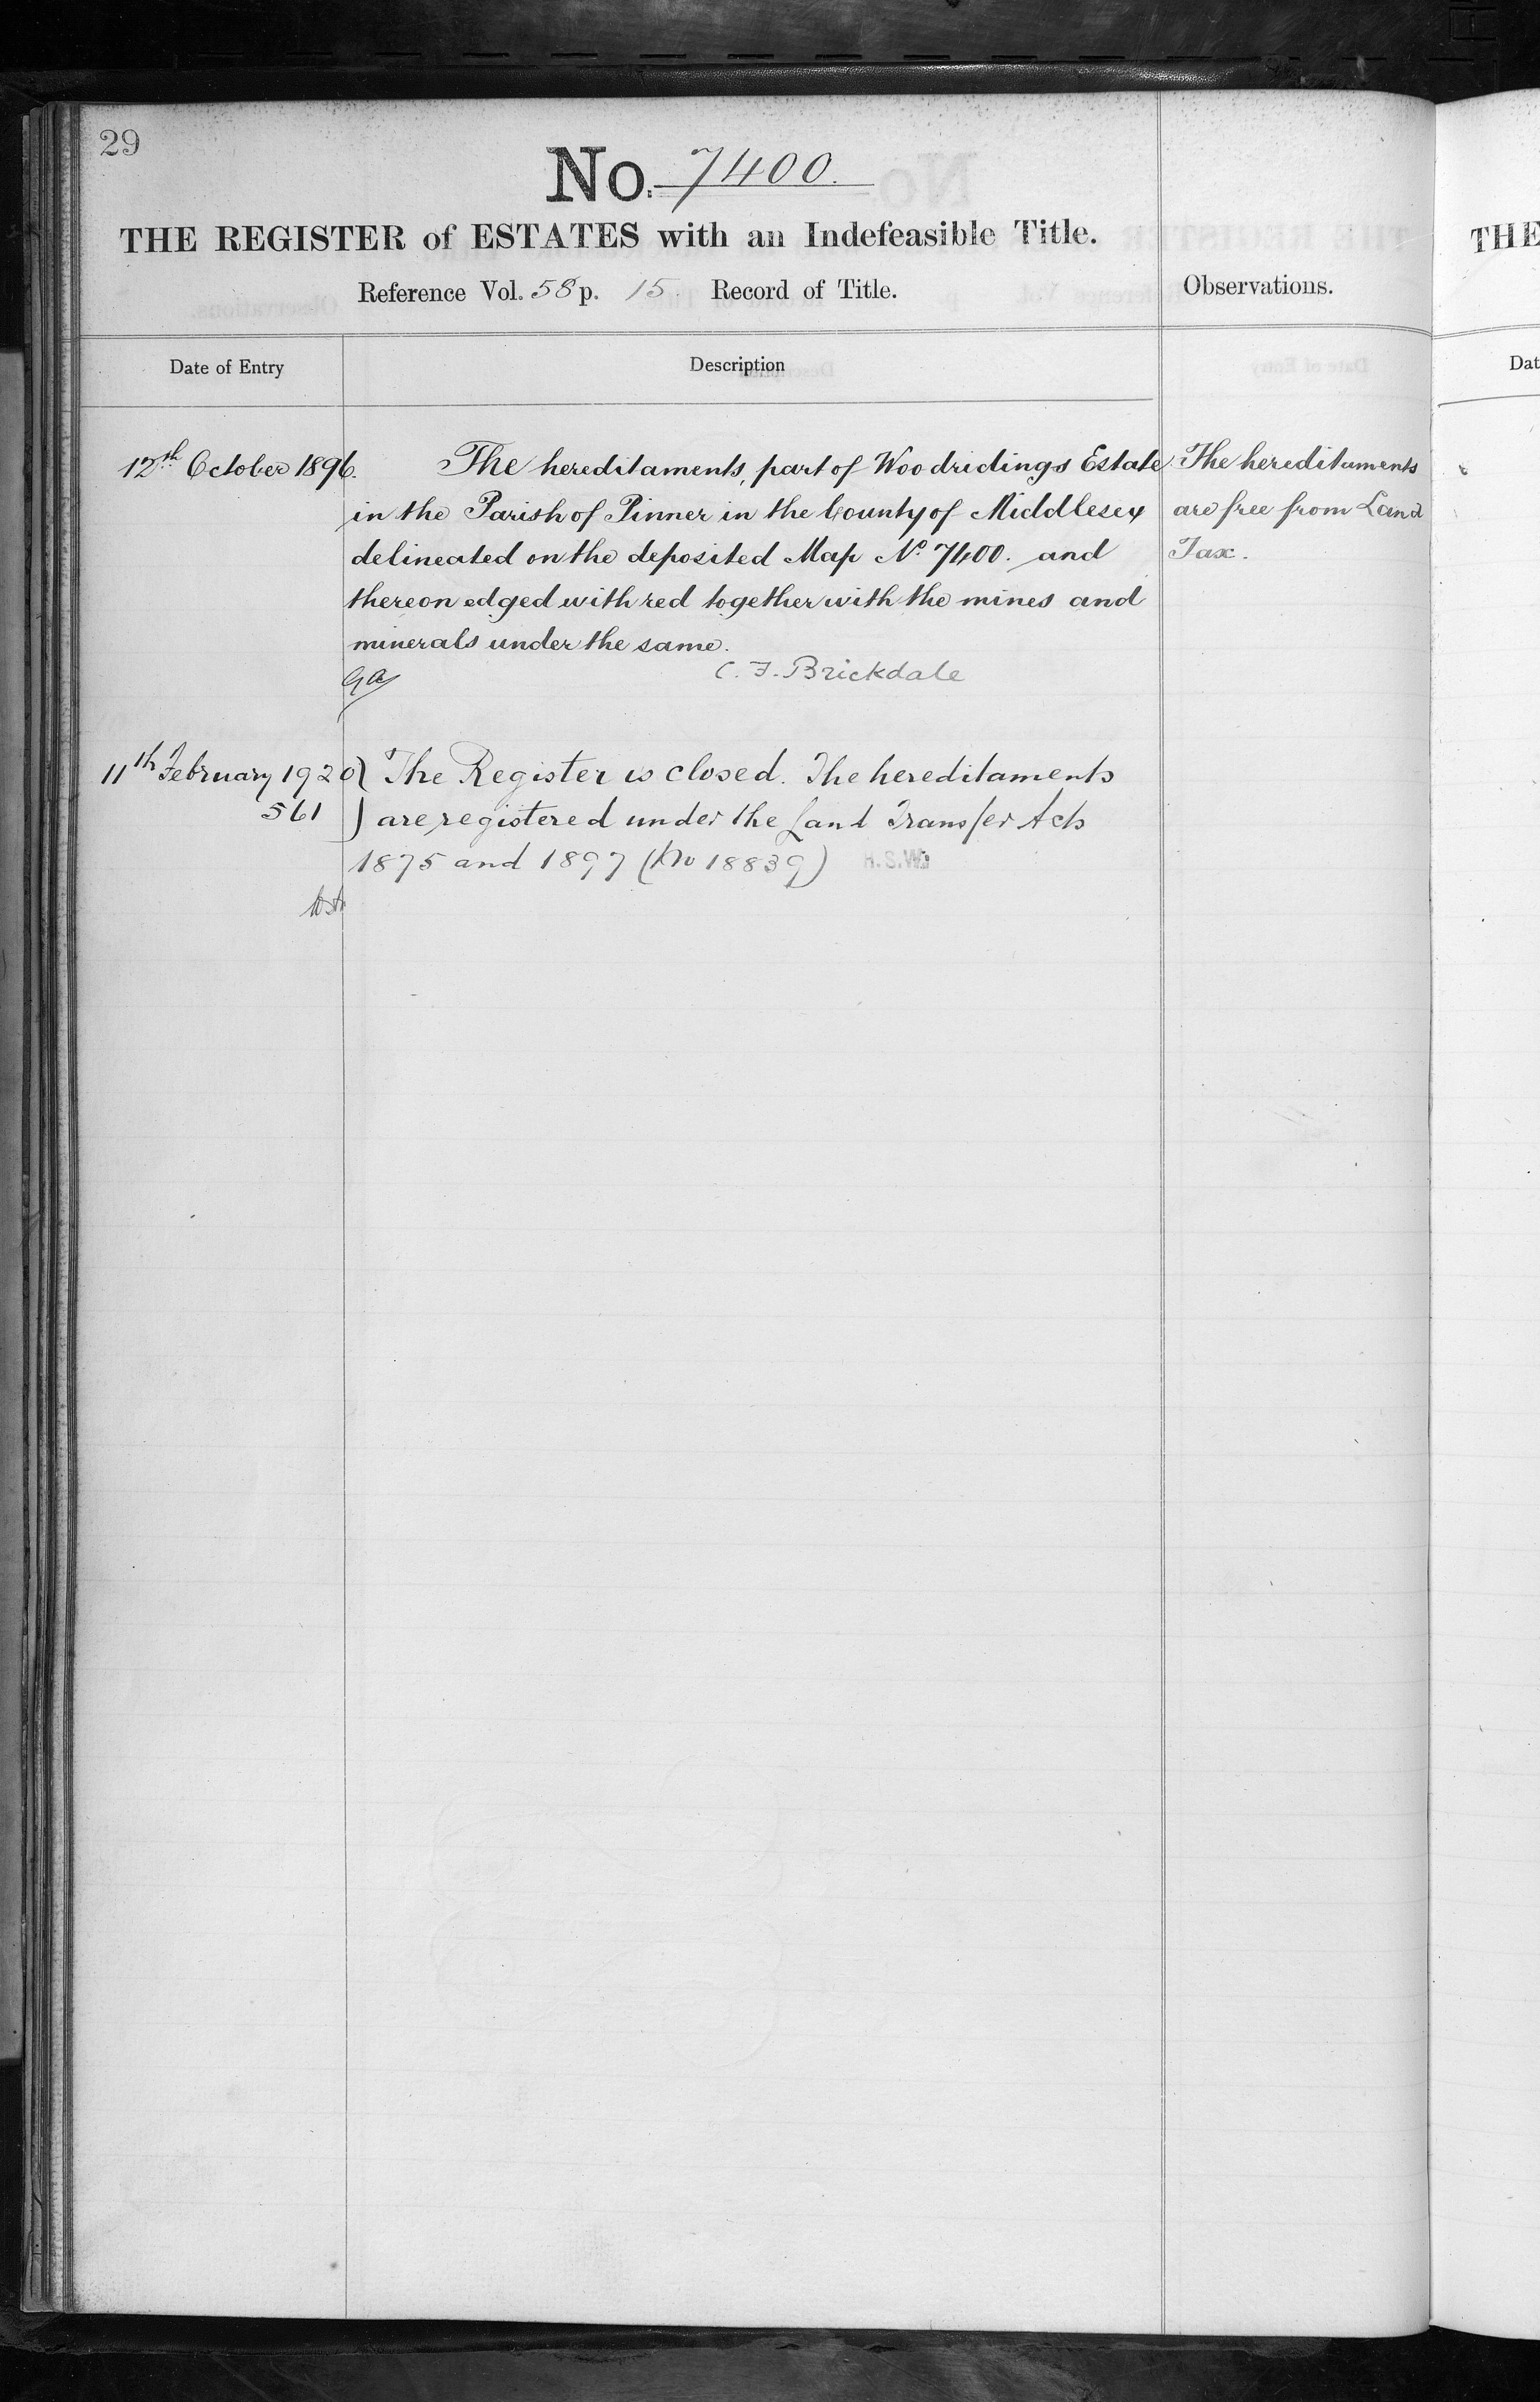 29
No. 7400.
THE REGISTER of ESTATES with an Indefeasible Title.
Reference Vol. 58 p. 15. Record of Title.
Observations.
Date of Entry
Description
12th October 1896.
The hereditaments, part of Woodridings Estate
in the Parish of Pinner in the County of Middlesex
delineated on the deposited Map No. 7400. and
thereon edged with red together with the mines and
minerals under the same.
C. F. Brickdale
The hereditaments
are free from Land
Tax.
11th February 1920
561
The Register is closed. The hereditaments
are registered under the Land Transfer Acts
1875 and 1897 (No 18839) H.S.W.
THE
Dat